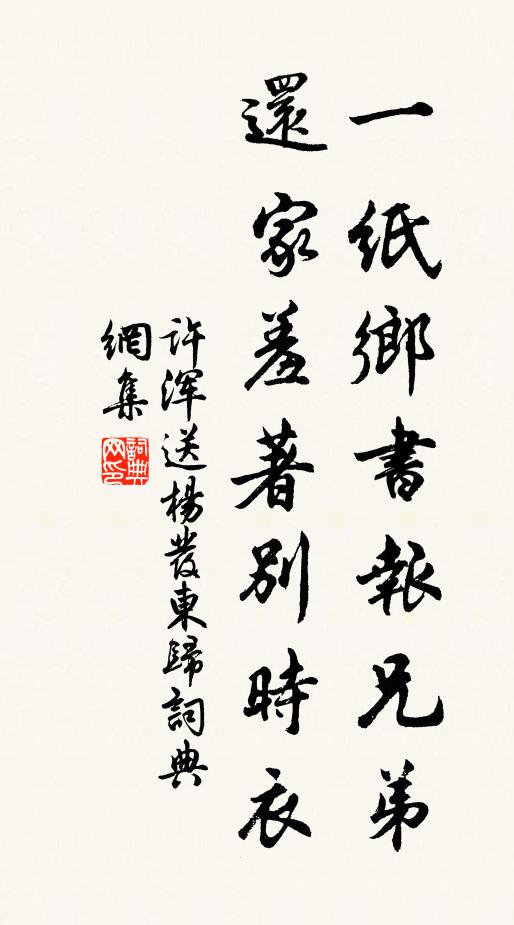 一紙鄉書報兄弟
還家羞著別時衣
許渾送楊發東歸詞典
網集
詞典网印